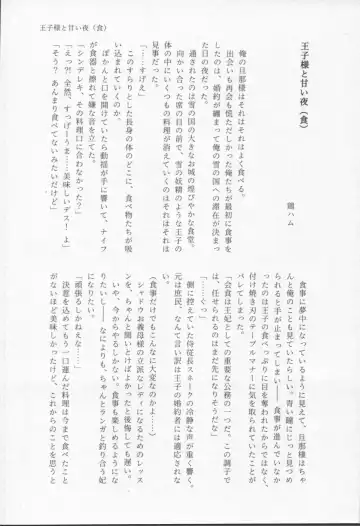 王子様と甘い夜（食）
王子様と甘い夜（食）
鶏ハム
俺の旦那様はそれはそれはよく食べる。
出会いも再会も慌ただしかった俺たちが最初に食事を
したのは、婚約が纏まって俺の雪の国への滞在が決まっ
た日の夜だった。
通されたのは雪の国の大きなお城の煌びやかな食堂。
向かい合った席の目の前で、雪の妖精のような王子の
体の中にいくつもの料理が消えていくのはそれはそれは
「……すげえ」
このすらりとした長身の体のどこに、食べ物たちが吸
い込まれていくのか。
ぽかんと口を開けていたら動揺が手に響いて、ナイフ
が食器と擦れて嫌な音を立てた。
「シンデレキ、その料理口に合わなかった？」
「えっ?! 全然、すっげーうま……美味しいデス! よ」
「そう？ あんまり食べてないみたいだけど」
食事に夢中になっているように見えて、旦那様はちゃ
んと俺のことも見ていたらしい。青い瞳にじっと見つめ
られると手が止まってしまい――食事が進んでいなか
ったのは王子の食べっぷりに目を奪われたからではなく、
付け焼き刃のテーブルマナーに気を取られていたことが
バレてしまった。
「会食は王妃としての重要な公務の一つだ。この調子で
は、任せられるのはまだ先になりそうだな」
「……ぐっ」
側に控えていた侍従長スネークの冷静な声が重く響く。
元は庶民、なんて言い訳は王子の婚約者には適応されな
い。
（食事だけでもこんなに大変なのかよ……）
シャドウは義母様の立派なレディになるためのレッス
ンを、ちゃんと聞いとけばよかったと後悔しても遅い。
いや、今からやるしかない。食事も楽しめるようにな
りたいし――なによりも、ちゃんとランガと釣り合う妃
になりたい。
「頑張るしかねえな……」
決意を込めてもう一口運んだ料理は今まで食べたこと
がないほど美味しかったけど、これからのことを思うと